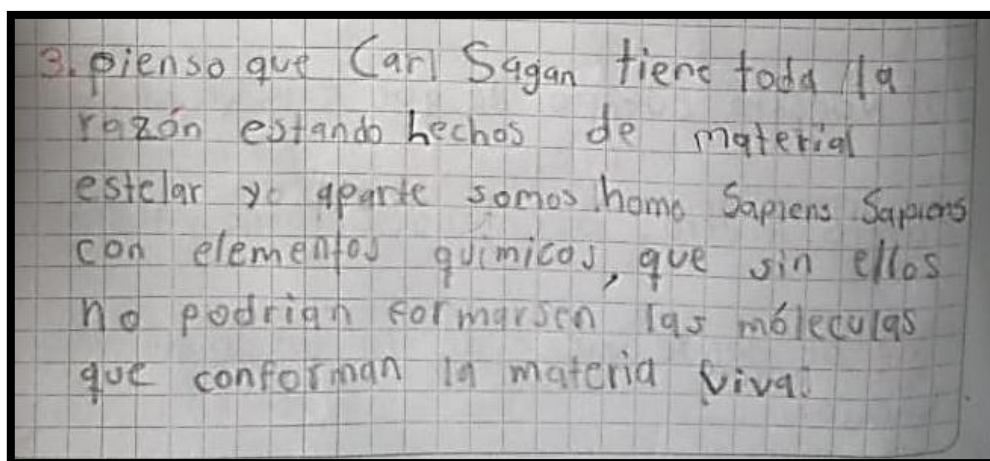 3. pienso que Carl Sagan tiene toda la
razón estando hechos de material
estelar yo aparte somos homo Sapiens Sapiens
con elementos químicos, que sin ellos
no podrian formarsen las móleculas
que conforman la materia viva.